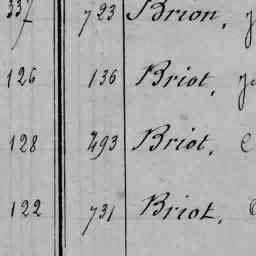 337 723 Brion,
126 136 Briot,
128 493 Briot,
122 731 Briot,